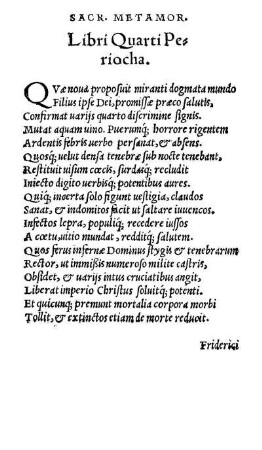 SACR. METAMOR.
Libri Quarti Pe-
riocha.
QVæ noua proposuit miranti dogmata mundo
Filius ipse Dei, promissæ præco salutis,
Confirmat uarijs quarto discrimine signis.
Mutat aquam uino. Puerumq; horrore rigentem
Ardentis febris uerbo persanat, & absens.
Quosq; uelut densa tenebræ sub nocte tenebant,
Restituit uisum cæcis, surdasq; recludit
Iniecto digito uerbisq; potentibus aures.
Quiq; inerta solo figunt uestigia, claudos
Sanat, & indomitos facit ut saltare iuuencos.
Infectos lepra, populiq; recedere iussos
A cœtu, uitio mundat, redditq; salutem.
Quos ferus infernæ Dominus stygis & tenebrarum
Rector, ut immissis numeroso milite castris,
Obsidet, & uarijs intus cruciatibus angit,
Liberat imperio Christus soluitq; potenti.
Et quicunq; premunt mortalia corpora morbi
Tollit, & extinctos etiam de morte reducit.
Friderici